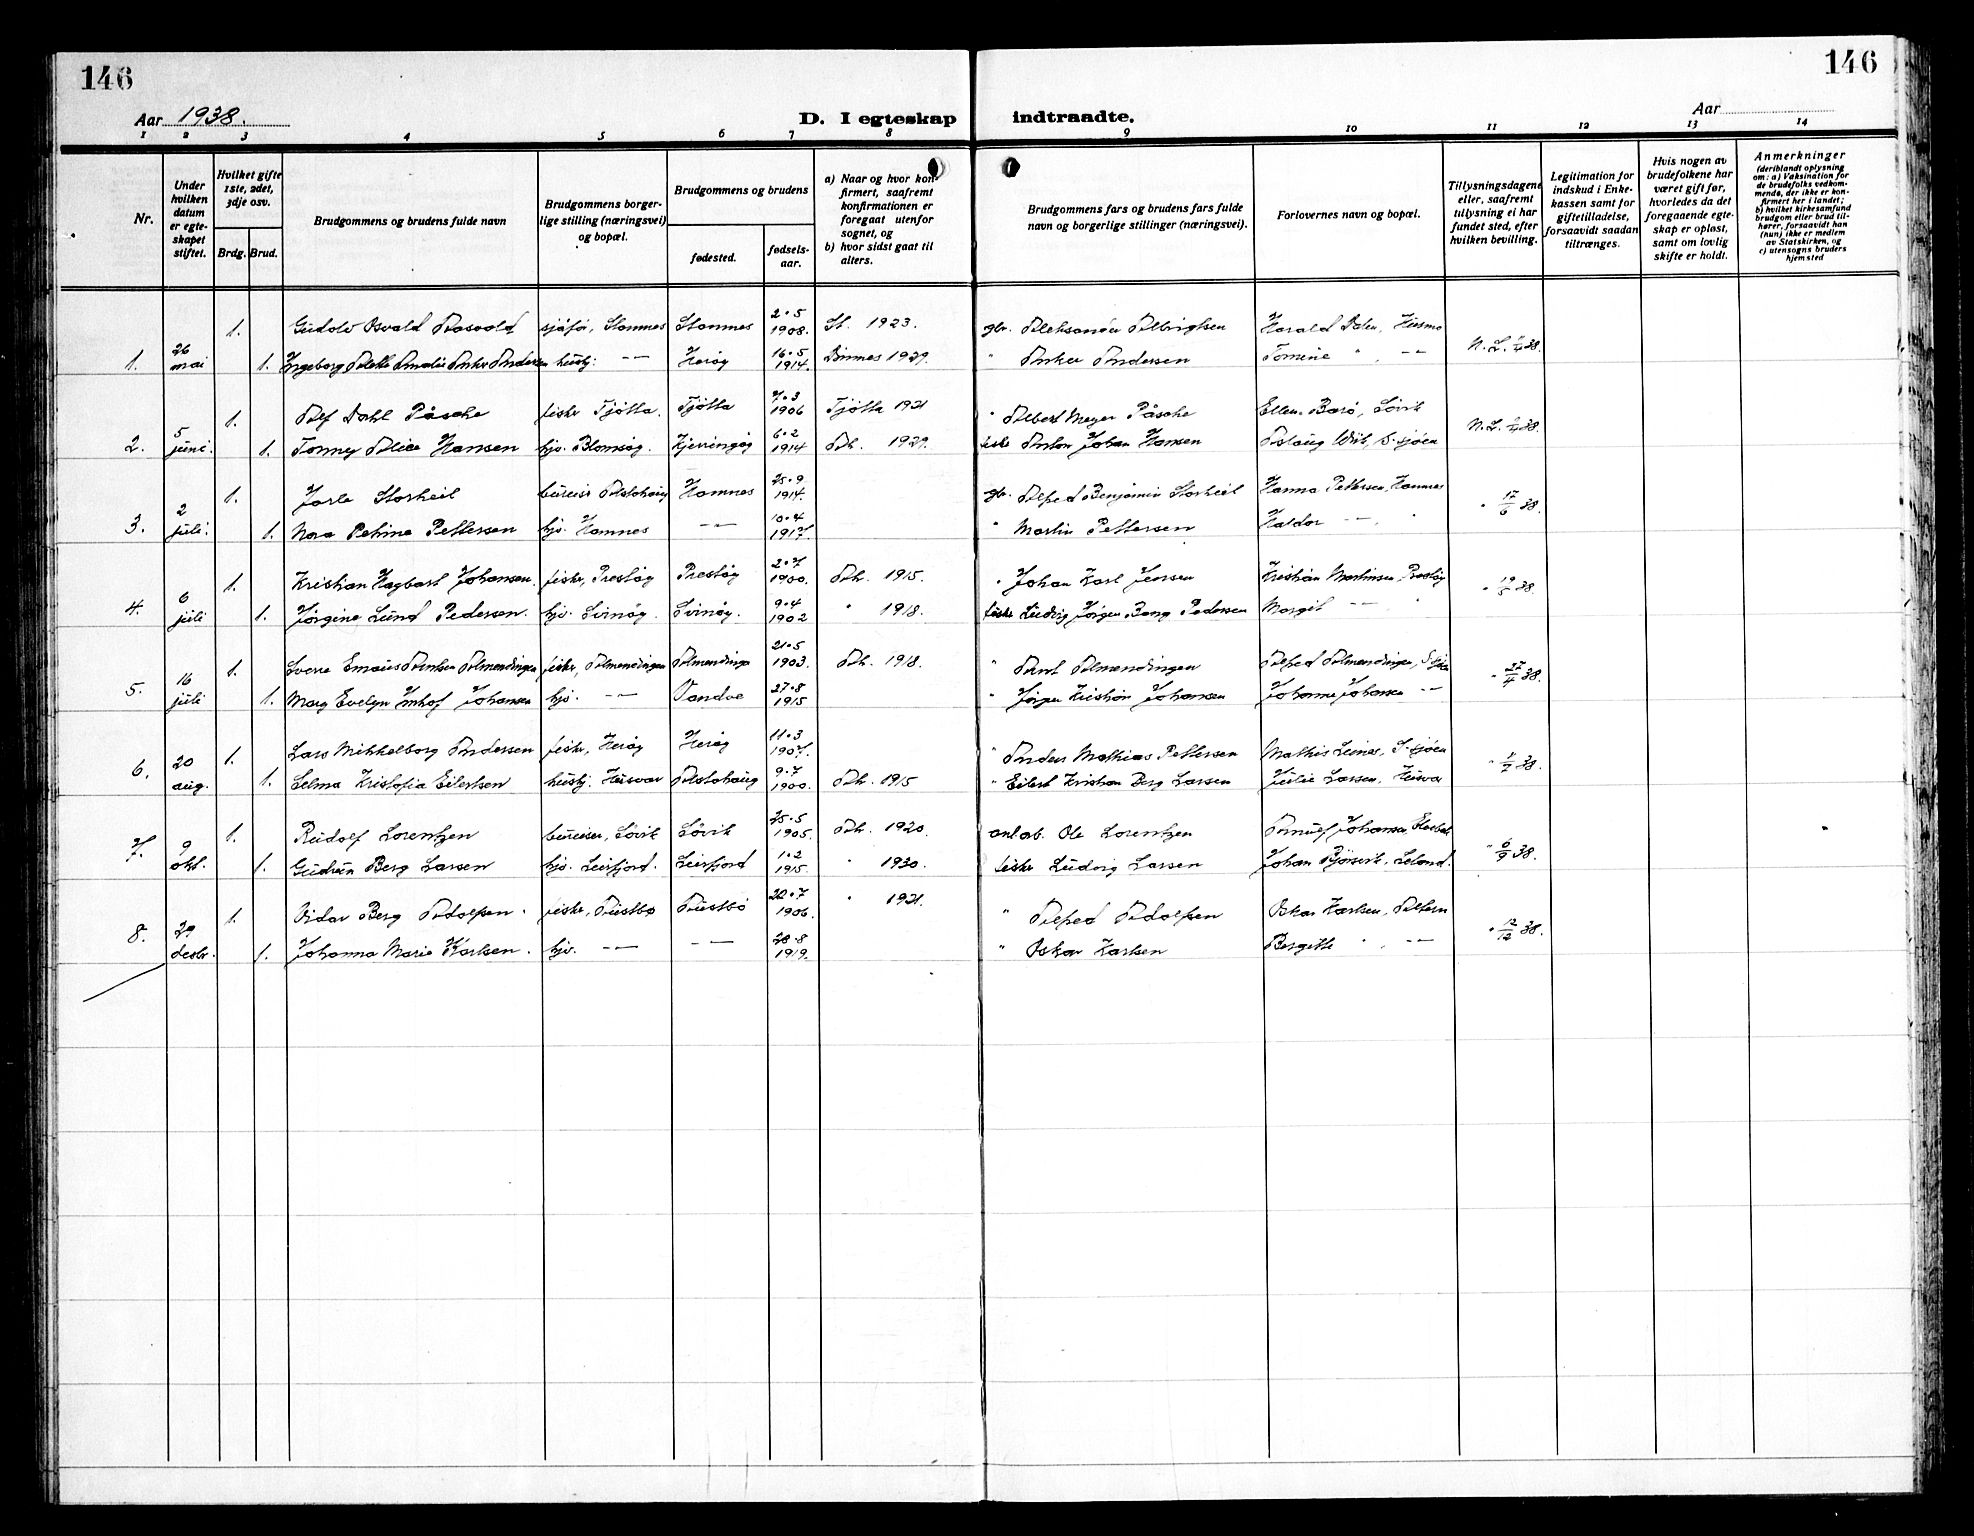 146
146
Aar 1938.
D. I egteskap indtraadte.
Aar
1 2 3 4 5 6 7 8 9 10 11 12 13 14
Nr.
Under hvilken datum er egteskapet stiftet.
Hvilket gifte 1ste, 2det, 3dje osv.
Brdg. Brud.
Brudgommens og brudens fulde navn
Brudgommens borgerlige stilling (næringsvei) og bopæl.
Brudgommens og brudens
fødested.
fødselsaar.
a) Naar og hvor konfirmert, saafremt konfirmationen er foregaat utenfor sognet, og
b) hvor sidst gaat til alters.
Brudgommens fars og brudens fars fulde navn og borgerlige stillinger (næringsvei).
Forlovernes navn og bopæl.
Tillysningsdagene eller, saafremt tillysning ei har fundet sted, efter hvilken bevilling.
Legitimation for indskud i Enkekassen samt for giftetilladelse, forsaavidt saadan tiltrænges.
Hvis nogen av brudefolkene har været gift før, hvorledes da det foregaaende egteskap er opløst, samt om lovlig skifte er holdt.
Anmerkninger
(deriblandt oplysning om: a) Vaksination for de brudefolks vedkommende, der ikke er konfirmert her i landet;
b) hvilket kirkesamfund brudgom eller brud tilhører, forsaavidt han (hun) ikke er medlem av Statskirken, og
c) utensogns bruders hjemsted
1. 26 mai
1. Gudolv Osvald Aasvold Stamnes Stamnes 2·5 1908. St. 1923. gbr. Aleksander Albrigtsen Harald Dalen, Husmo
1. Ingeborg Amalie Anker Andersen hustj. —"— Herøy 16·5 1914. Dønnes 1929. " Anker Andersen Tomine " , —"— N. L. 38.
2. 5 juni.
1. Alf Dahl Påsche fisker Tjøtta. Tjøtta 7·3 1906 Tjøtta 1921 " Albert Meyer Påsche Ellen Barø, Søvik
1. Tonny Alice Hansen hjv. Blomsøy. Kjerringøy 6·2 1914 Ah. 1929. fisker Anton Johan Hansen Aslaug Wiik, S.sjøen N. L. 38.
3. 2 juli.
1. Jarle Storheil bureiser Alstahaug Hamnes 25·9 1914. gbr. Alfred Benjamin Storheil Hanna Pettersen, Hamnes
1. Nora Petrine Pettersen hjv. Hamnes —"— 10·4 1917. " Martin Pettersen Haldor —"— " " 17/6 38.
4. 6 juli
1. Kristian Hagbart Johansen. fisker, Prestøy Prestøy 2·7 1900. Ah. 1915. " Johan Karl Jenssen Kristian Martinsen, Prestøy
1. Jørgine Lund Pedersen. hjv. Svinøy. Svinøy. 9·4 1902 " 1918. fisker Ludvig Jørgen Berg Pedersen Margit —"— " 38.
5. 16 juli
1. Sverre Emaus Arntsen Almendingen fisker, Almendingen Almendinge 21·5 1903. Ah. 1918. " Arnt Almendingen Alfred Almendingen, S.sjøen
1. Mary Evelyn Imhof Johansen hjv. —"— Vandve 27·8 1915 " Jørgen Kristian Johansen Johanne Johansen —"— " 27/4 38.
6. 20 aug.
1. Lars Mikkelborg Andersen fisker, Herøy Herøy 11·3 1907. " Anders Mathias Pettersen Mathis Leines, S.sjøen
1. Selma Kristofia Eilertsen hustj. Husvær Alstahaug 9·7 1900. Ah. 1915 " Eilert Kristian Berg Larssen Julie Larssen, Husvær " 38.
7. 9 okt.
1. Rudolf Lorentzen bureiser, Søvik Søvik 25·5 1905. Ah. 1920. anl.arb. Ole Lorentzen Arnulf Johansen,
1. Gudrun Berg Larssen hjv. Leirfjord. Leirfjord 1·2 1915. " 1930. fisker Ludvig Larssen Johan Bjørsvik, Leland. " 6/9 38.
8. 29 desbr.
1. Vidar Berg Adolfsen. fisker, Austbø Austbø 20·7 1906. " 1921. " Alfred Adolfsen Oskar Karlsen,
1. Johanna Marie Karlsen. hjv. —"— —"— 28·8 1919. " Oskar Karlsen Bergitte " , —"— " 12/12 38.